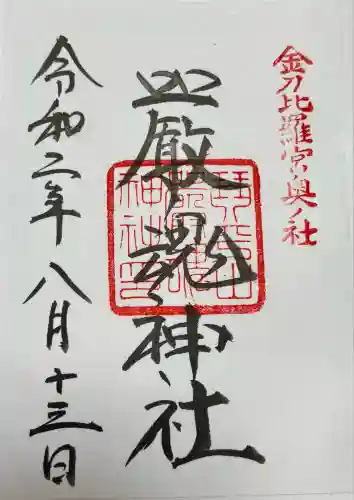 金刀比羅宮奥ノ社
厳魂神社
令和二年八月十三日